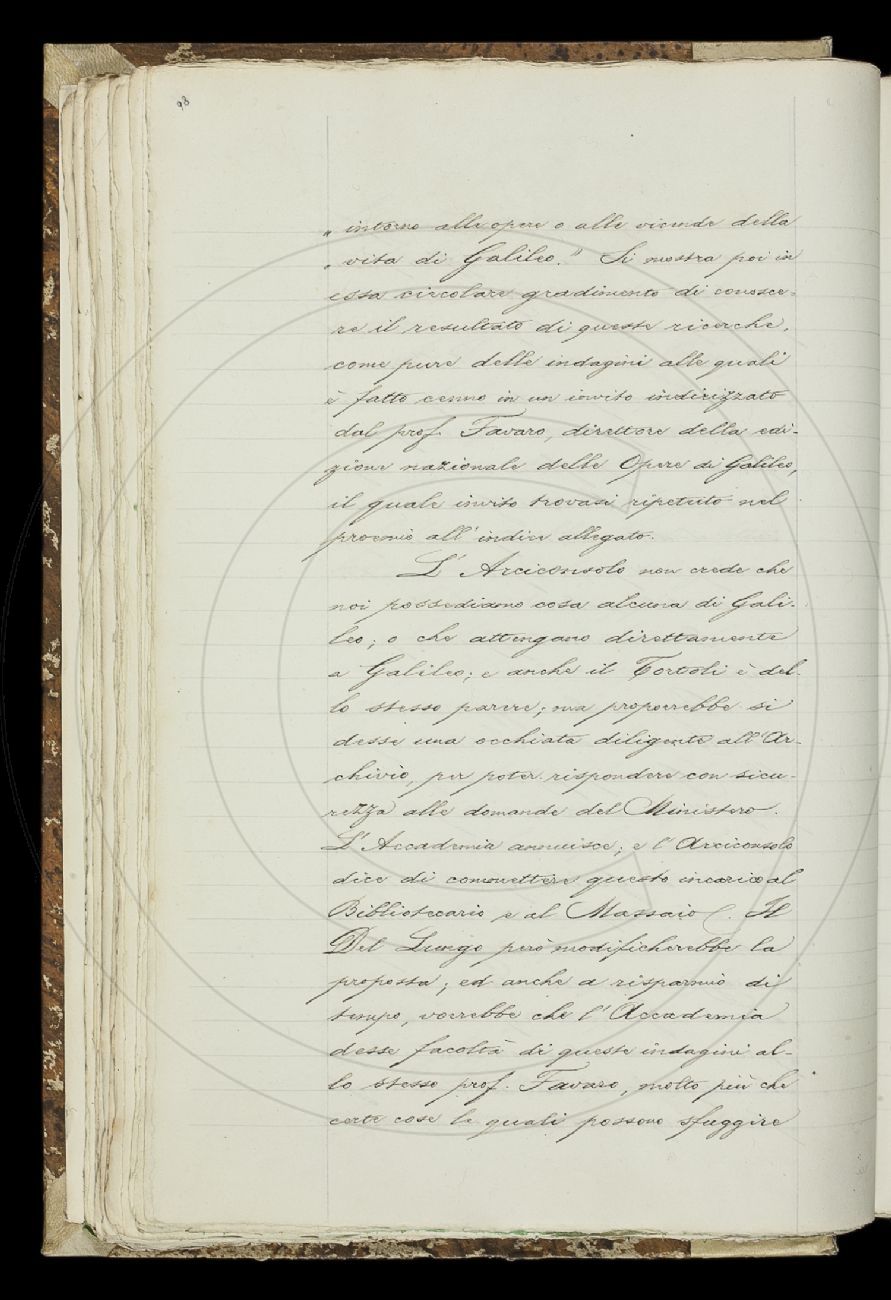 98
„ intorno alle opere o alle vicende della
„ vita di Galileo." Si mostra poi in
essa circolare gradimento di conosce-
re il resultato di queste ricerche,
come pure delle indagini alle quali
è fatto cenno in un invito indirizzato
dal prof. Favaro, direttore della edi-
zione nazionale delle Opere di Galileo,
il quale invito trovasi ripetuto nel
proemio all' indice allegato.
L' Arciconsolo non crede che
noi possediamo cosa alcuna di Gali-
leo; o che attengano direttamente
a Galileo; e anche il Tortoli è del-
lo stesso parere; ma proporrebbe si
desse una occhiata diligente all' Ar-
chivio, per poter rispondere con sicu-
rezza alle domande del Ministero.
L' Accademia annuisce; e l' Arciconsolo
dice di commettere questo incarico al
Bibliotecario e al Massaio. Il
Del Lungo però modificherebbe la
proposta; ed anche a risparmio di
tempo, vorrebbe che l' Accademia
desse facoltà di queste indagini al-
lo stesso prof. Favaro, molto più che
certe cose le quali possono sfuggire